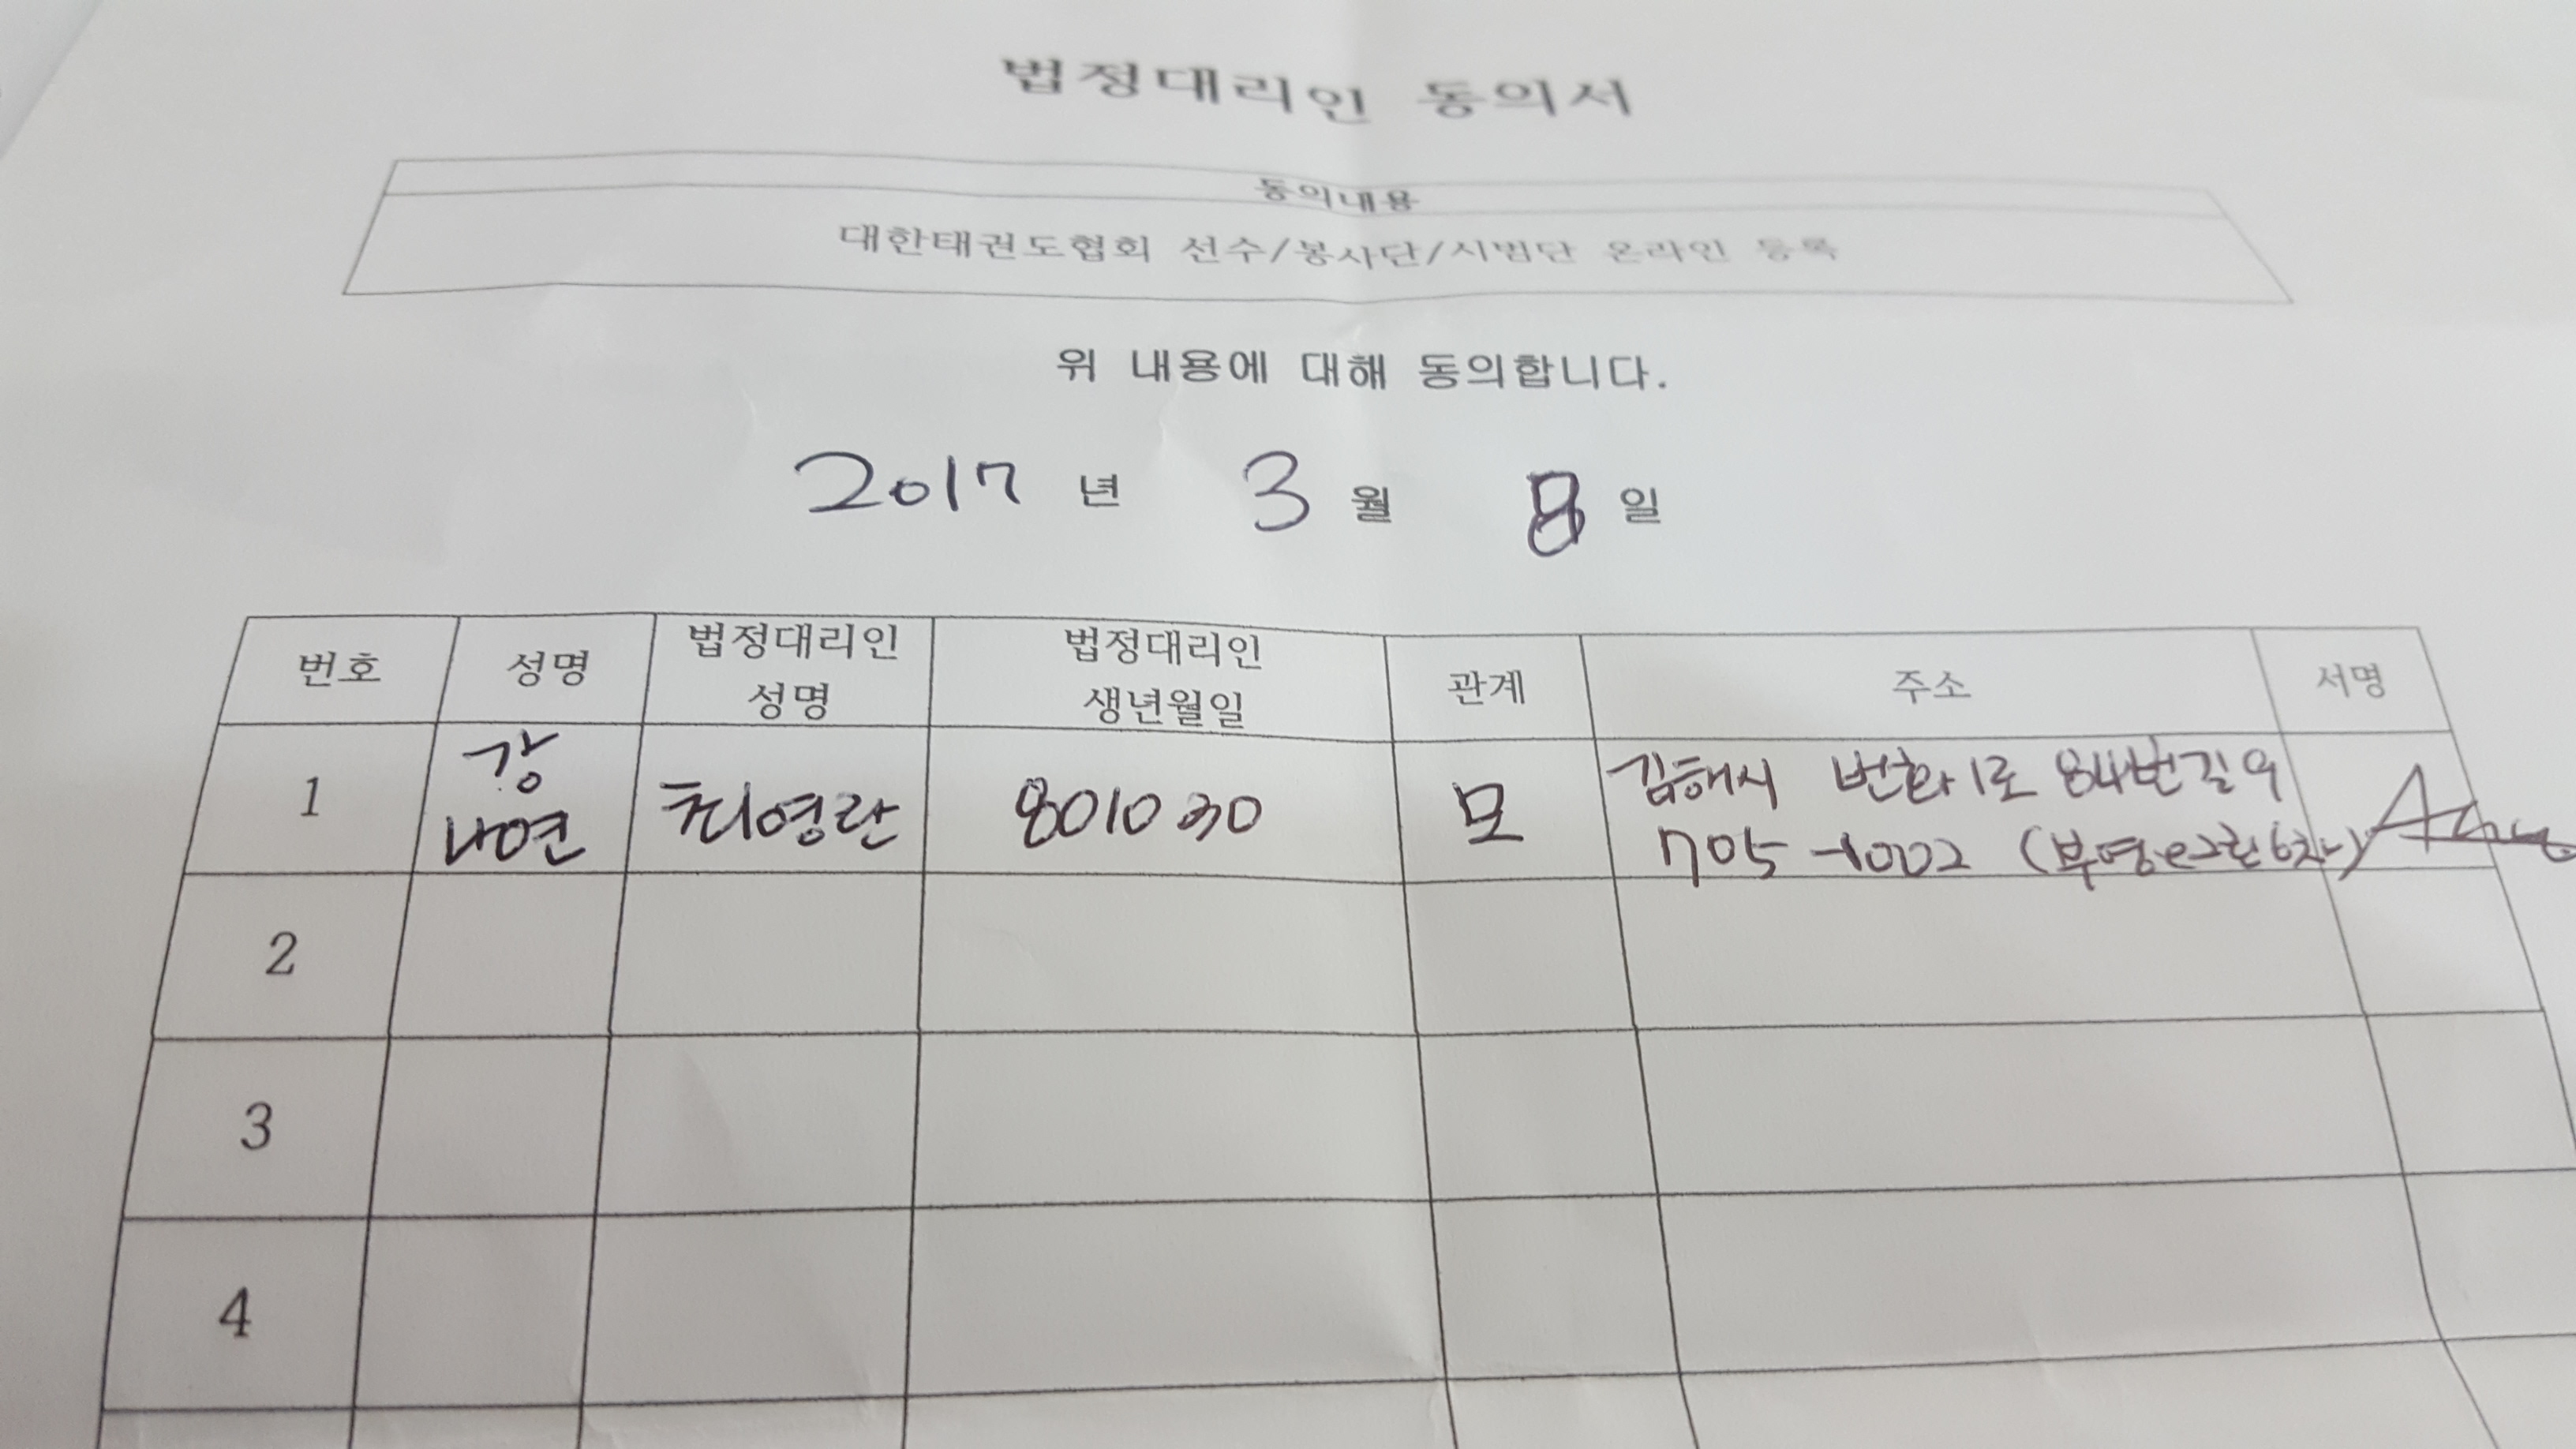 법정대리인 동의서
동의내용
대한태권도협회 선수/봉사단/시범단 온라인 등록
위 내용에 대해 동의합니다.
2017 년 3 월 8 일
번호 성명 법정대리인 성명 법정대리인 생년월일 관계 주소 서명
1 강나연 최영란 801030 모 김해시 번화1로 84번길 9
705-1002 (부영e그린6차)
2
3
4